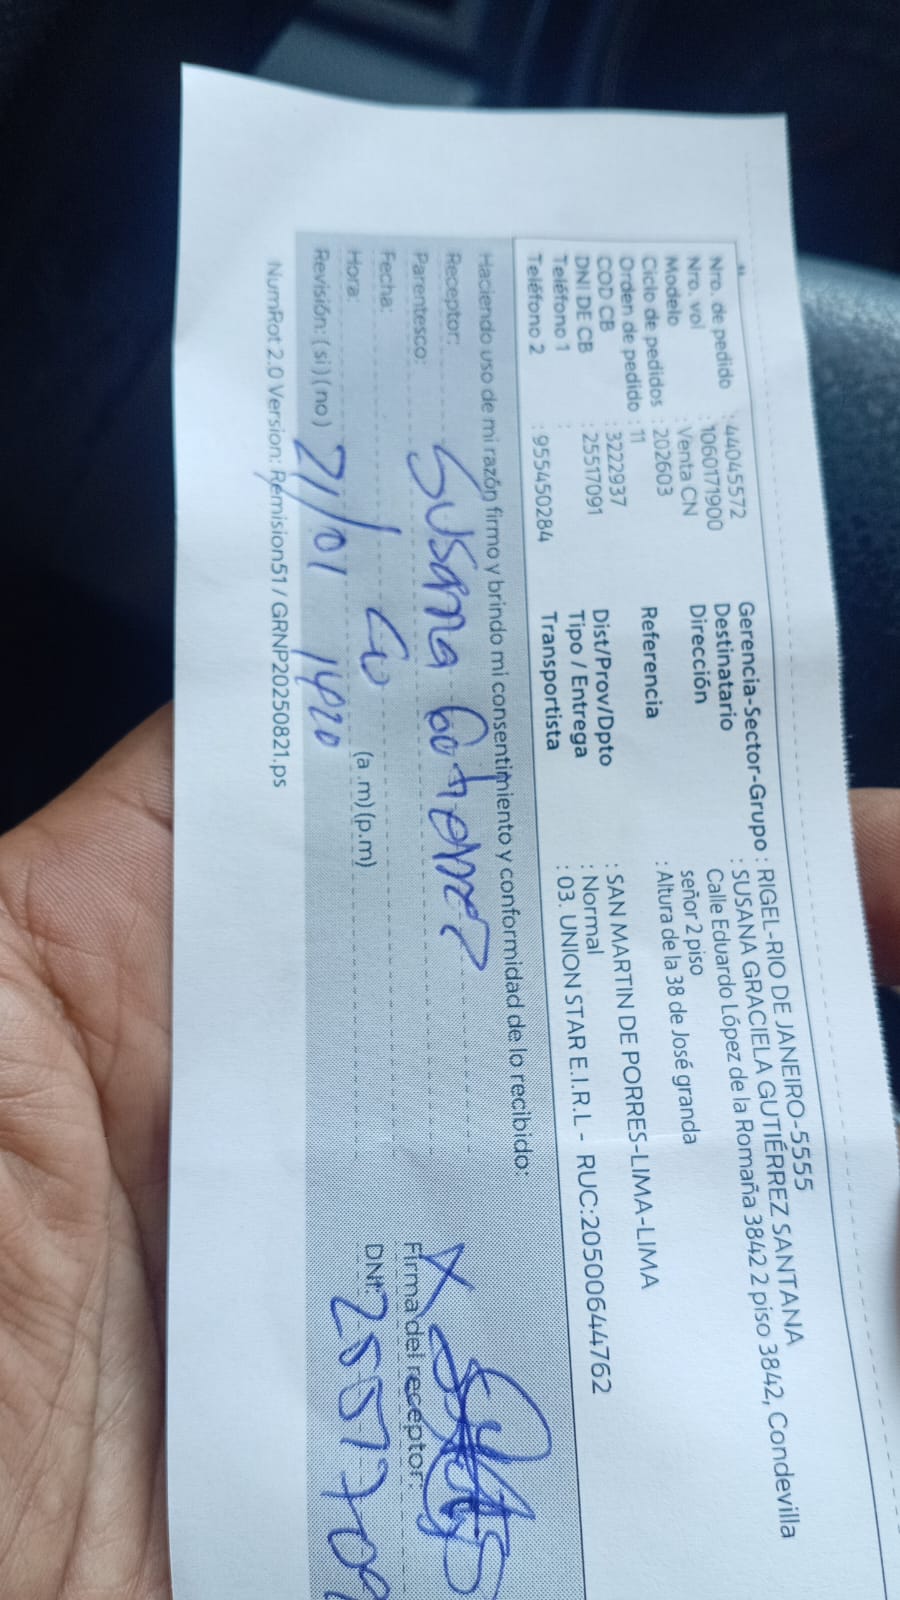 Nro. de pedido : 44045572
Nro. vol : 1060171900
Modelo : Venta CN
Ciclo de pedidos : 202603
Orden de pedido : 11
COD CB : 3222937
DNI DE CB : 25517091
Teléfono 1 :
Teléfono 2 : 955450284
Gerencia-Sector-Grupo : RIGEL-RIO DE JANEIRO-5555
Destinatario : SUSANA GRACIELA GUTIÉRREZ SANTANA
Dirección Calle Eduardo López de la Romaña 3842 2 piso 3842, Condevilla
señor 2 piso
Referencia : Altura de la 38 de José granda
Dist/Prov/Dpto : SAN MARTIN DE PORRES-LIMA-LIMA
Tipo / Entrega : Normal
Transportista : 03. UNION STAR E.I.R.L - RUC:20500644762
Haciendo uso de mi razón firmo y brindo mi consentimiento y conformidad de lo recibido:
Receptor: Susana
Parentesco:
Fecha:
Hora: (a .m)(p.m)
Revisión: (si)(no) 21/01 1420
Firma del receptor:
DNI: 2551709
NumRot 2.0 Version: Remision51 / GRNP20250821.ps